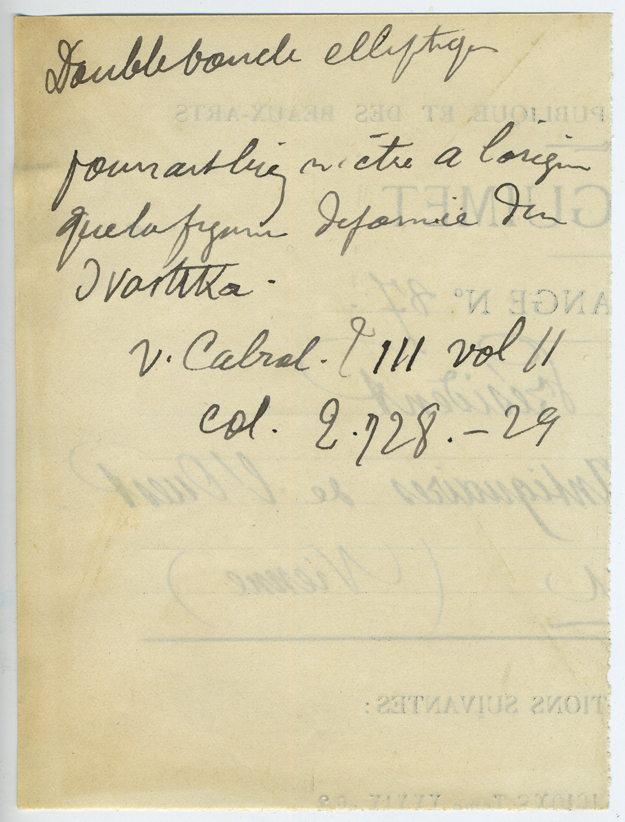 Double boucle elliptique
pourrait bien n'être à l'origine
que la figure déformée du
Svastika.
v. Cabrol. T III vol II
col. 2.728.-29
PUBLIQUE ET DES BEAUX-ARTS
GUIMET
ANGE N° 27
Président
Antiquaires de l'Ouest
(Vienne)
TIONS SUIVANTES :